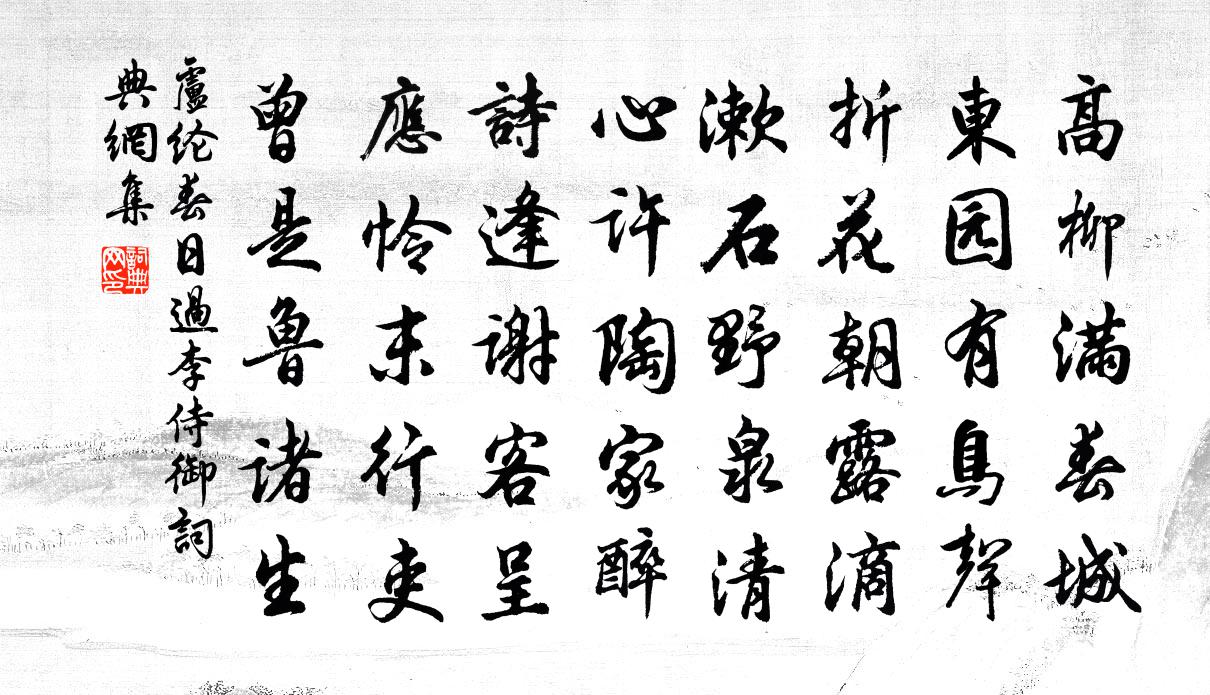 高柳满春城
東园有鳥聲
折花朝露滴
漱石野泉清
心許陶家醉
詩逢谢客呈
應怜末行吏
曾是魯諸生
盧纶春日過李侍御詞
典網集
詞典
网印